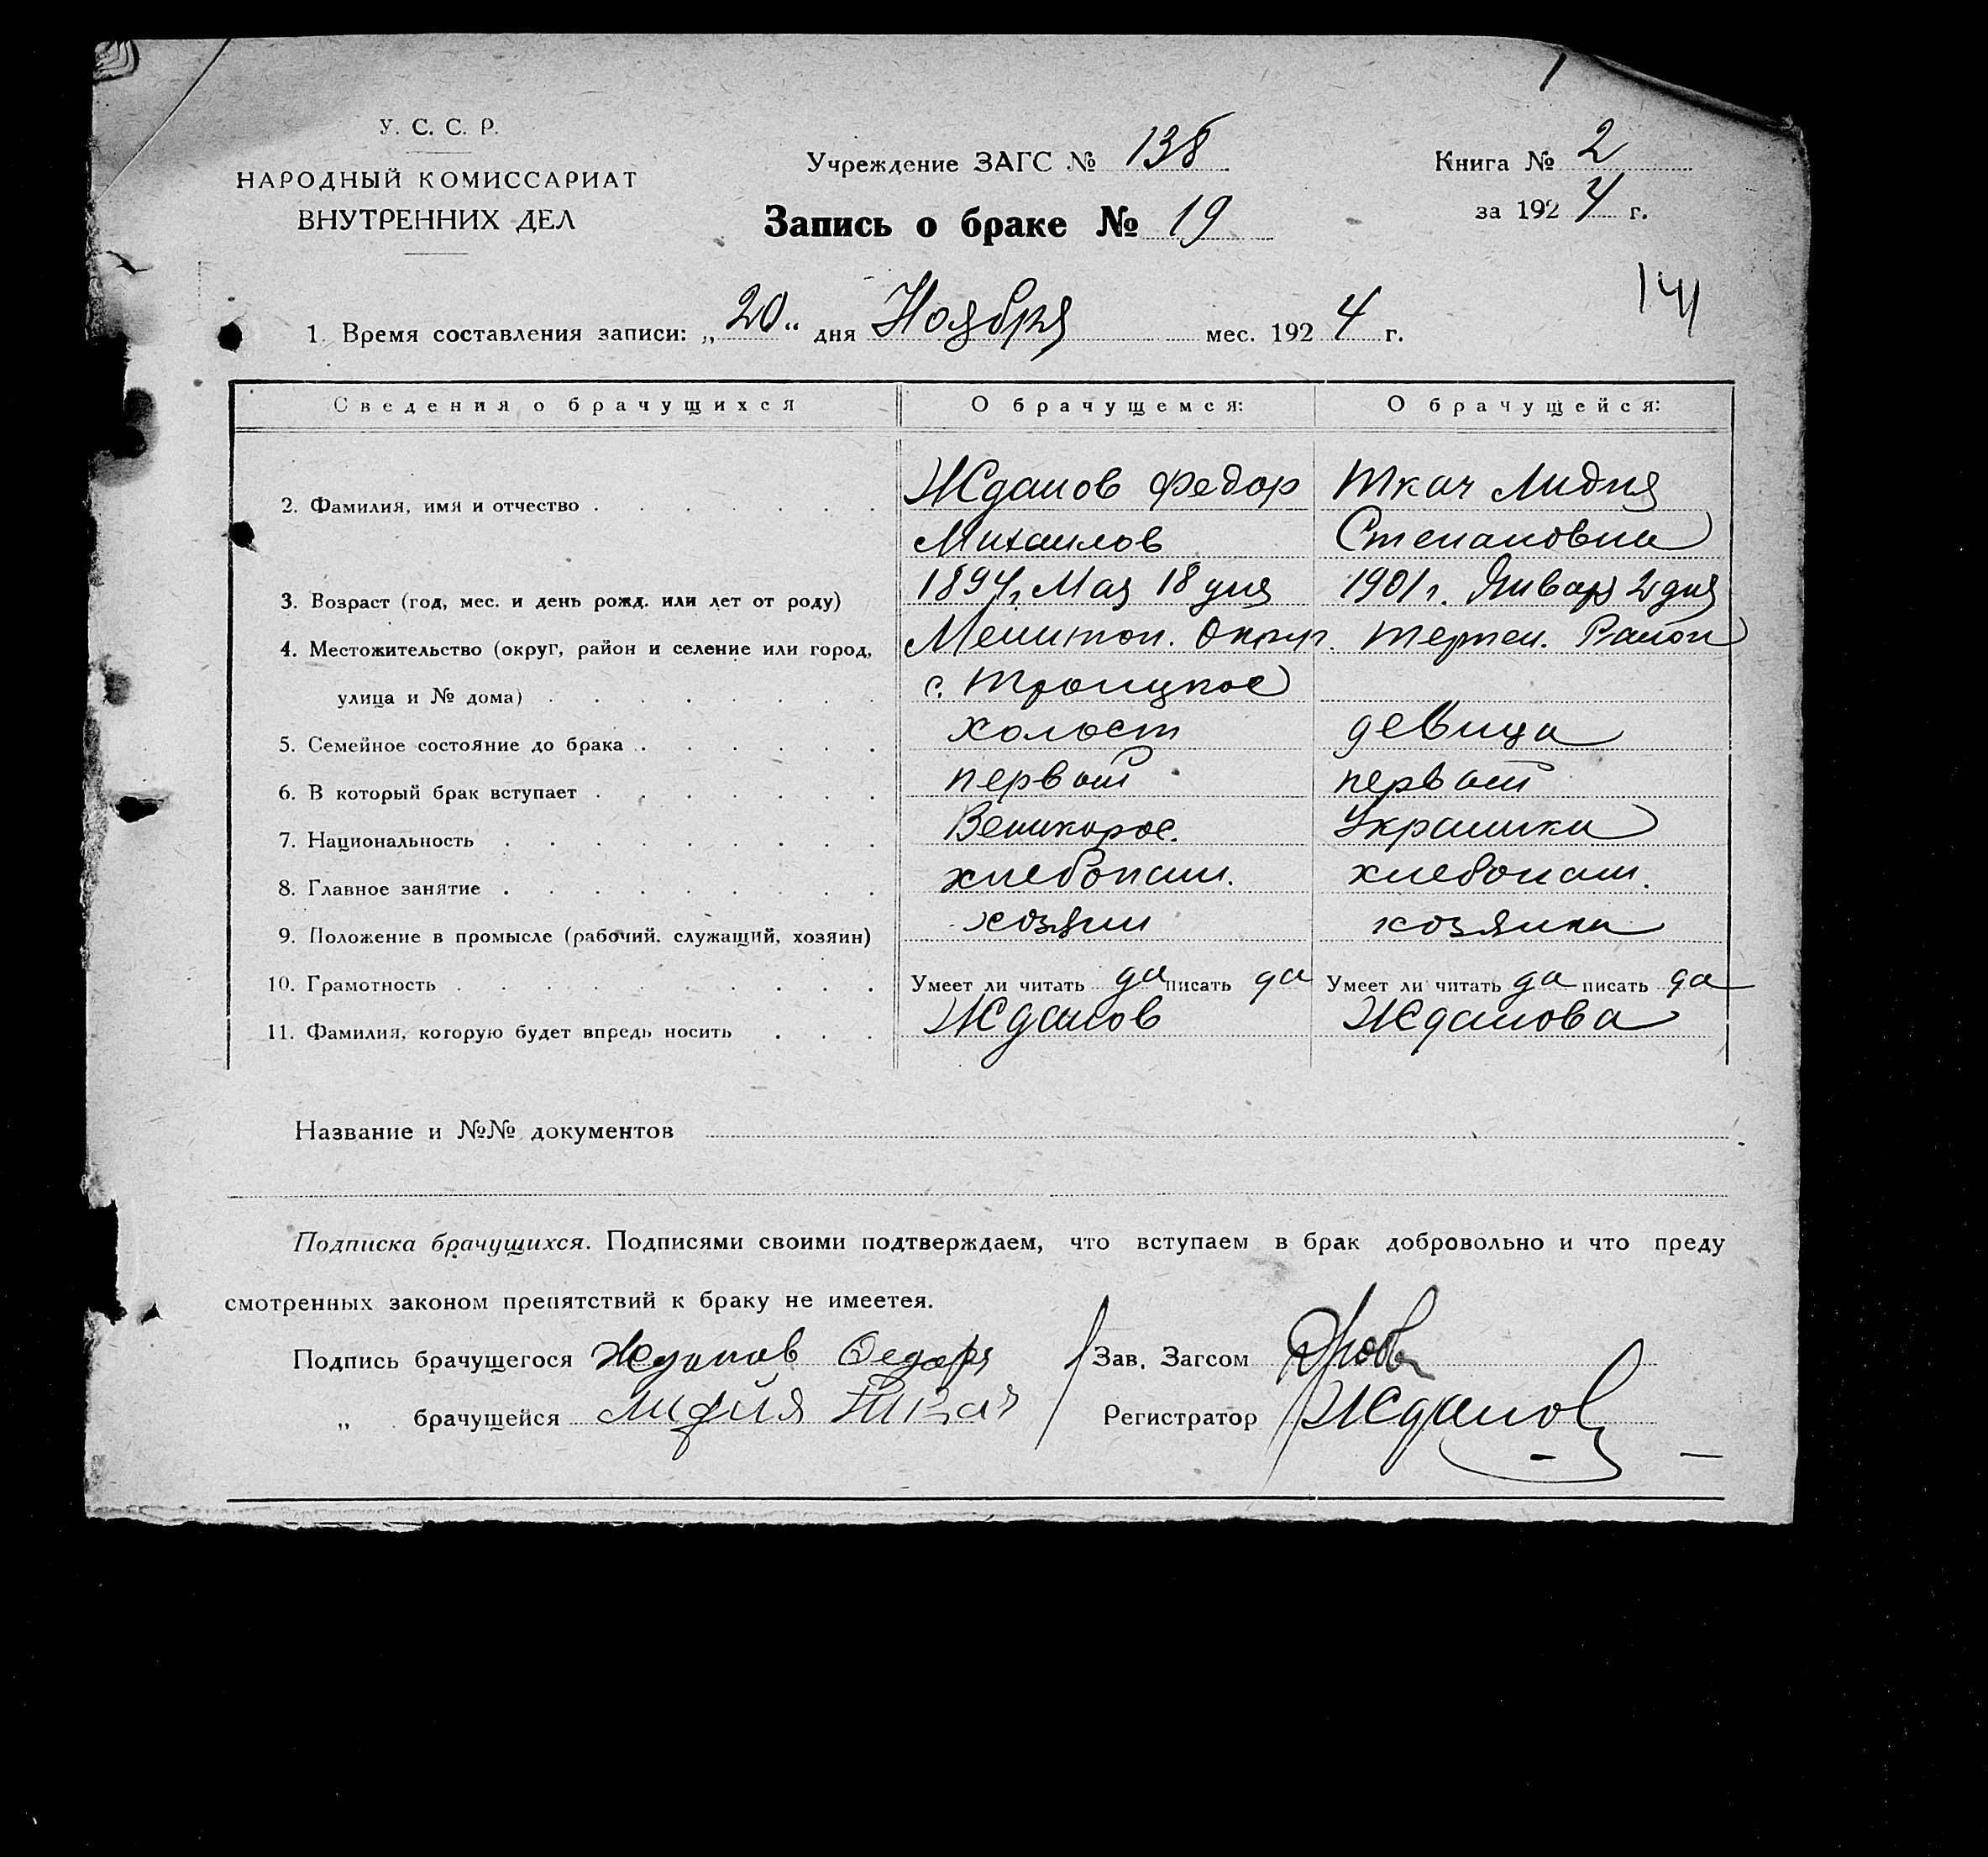 У. С. С. Р.
НАРОДНЫЙ КОМИССАРИАТ
ВНУТРЕННИХ ДЕЛ
Учреждение ЗАГС № 138
Запись о браке № 19
Книга № 2
за 1924 г.
141
1. Время составления записи: „20“ дня Ноября мес. 1924 г.
Сведения о брачущихся О брачущемся: О брачущейся:
2. Фамилия, имя и отчество Жданов Федор Ткач Лидия
Михаилов Степановна
3. Возраст (год, мес. и день рожд. или лет от роду) 1894, Мая 18 дня 1901 г. Январь 2 дня
4. Местожительство (округ, район и селение или город, Мелитоп. Округ. Терпен. Район
улица и № дома) с. Троицкое
5. Семейное состояние до брака холост девица
6. В который брак вступает первый первый
7. Национальность Великорос. Украинка
8. Главное занятие хлебопаш. хлебопаш.
9. Положение в промысле (рабочий, служащий, хозяин) хозяин хозяика
10. Грамотность Умеет ли читать да писать да Умеет ли читать да писать да
11. Фамилия, которую будет впредь носить Жданов Жданова
Название и №№ документов
Подписка брачущихся. Подписями своими подтверждаем, что вступаем в брак добровольно и что преду
смотренных законом препятствий к браку не имеетея.
Подпись брачущегося Жданов Федоръ Зав. Загсом
„ брачущейся Лидия Ткач Регистратор Жданов